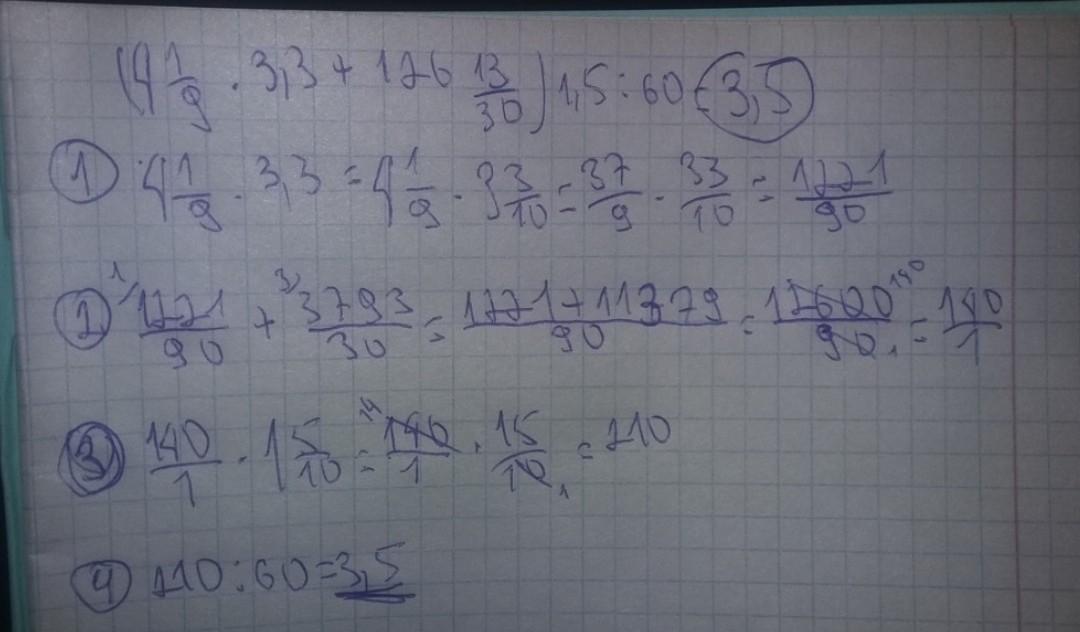 (4 1/9 · 3,3 + 126 13/30) 1,5 : 60 = 3,5
① 4 1/9 · 3,3 = 4 1/9 · 3 3/10 = 37/9 · 33/10 = 1221/90
② 1221/90 + 3793/30 = 1221+11379/90 = 12600/90 = 140/1
③ 140/1 · 1 5/10 = 140/1 · 15/10 = 210
④ 210 : 60 = 3,5